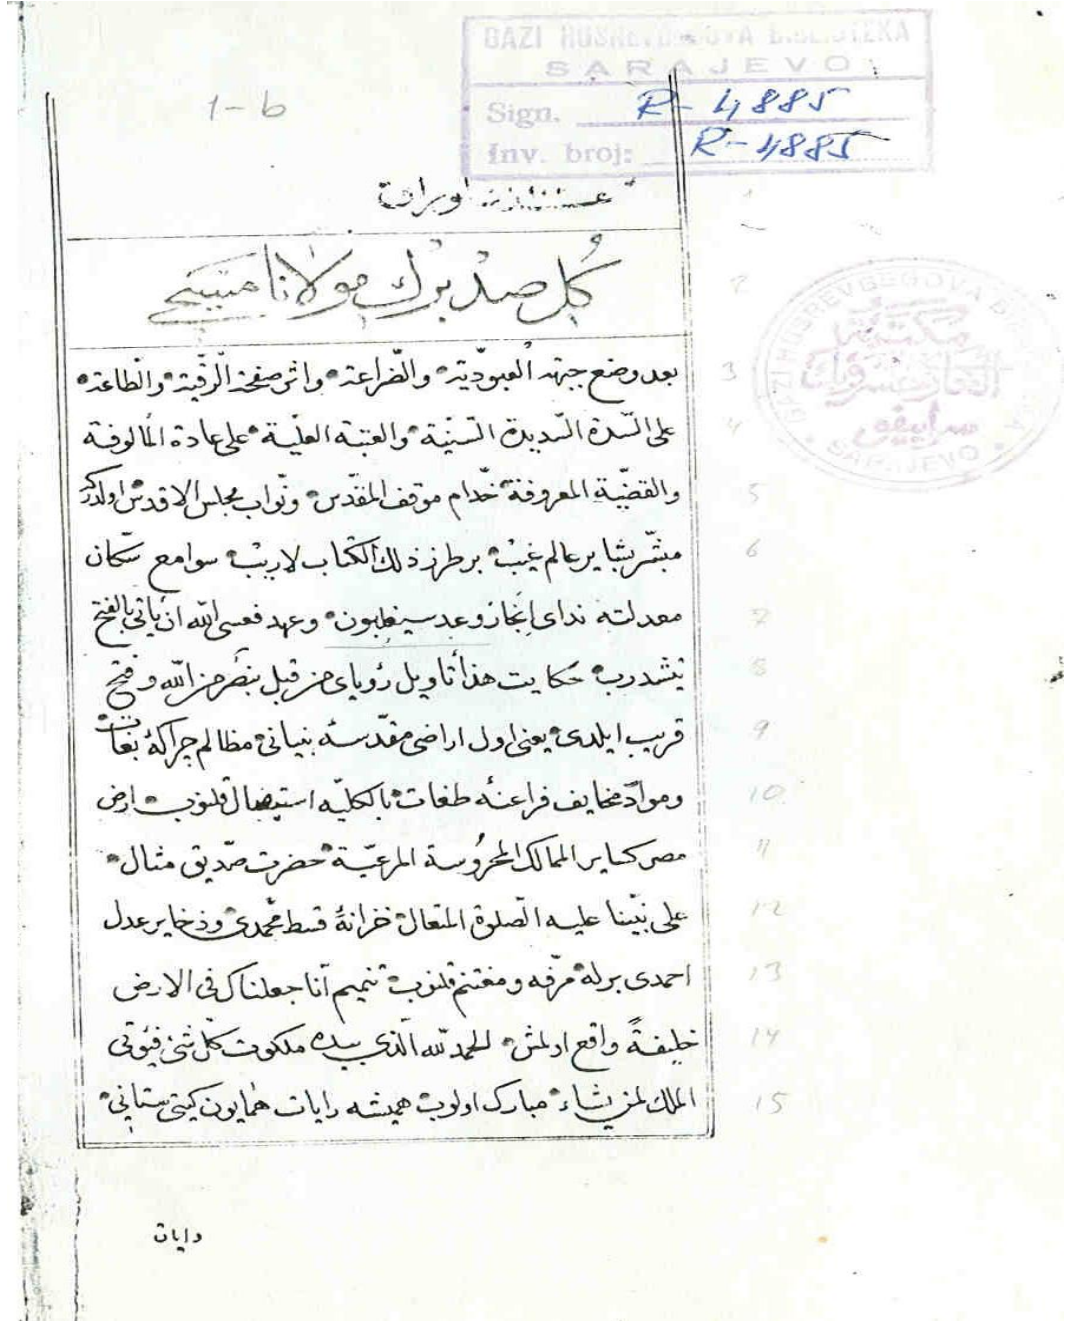 GAZI HUSREVBEGOVA BIBLIOTEKA
SARAJEVO
Sign. R-4885
Inv. broj: R-4885
1-b
اوراق
1
كُل صد برك مولانا مسيحى
2
بعد وضع جبهه العبوديّة والضّراعة واثر صفحة الرقّية والطاعة
3
على السّدة السّديدة السّنيّة والعتبة العليّة على عادة المألوفة
4
والقضيّة المعروفة خدّام موقف المقدّس ونوّاب مجلس الاقدس اولدركه
5
مبشّر بشاير عالم غيب بر طرز ذلك الكتاب لاريب سوامع سكّان
6
معدلته نداى انجاز وعد سيغلبون وعهد فعسى الله ان يأتى بالفتح
7
يتشدرب حكايت هذا تاويل رؤياى من قبل نصر من الله و فتح
8
قريب ايلدى يعنى اول اراضى مقدّسه بنيانى مظالم چراكهٔ بغات
9
وموادّ مخايف فراعنهٔ طغات بالكليّه استيصال قلنوب ارض
10
مصر كساير الممالك المحروسة المرعيّة حضرت صدّيق مثال
11
على نبيّنا عليه الصلوة المتعال خزانهٔ قسط محمّدى وذخاير عدل
12
احمدى برله مرفّه ومغتنم قلنوب تتميم انّا جعلناك فى الارض
13
خليفةً واقع اولمش الحمد لله الّذى بيده ملكوت كلّ شئ فيؤتى
14
الملك لمن يشاء مبارك اولوب هميشه رايات همايون كيتى ستانى
15
رايات
GAZI HUSREVBEGOVA BIBLIOTEKA
SARAJEVO